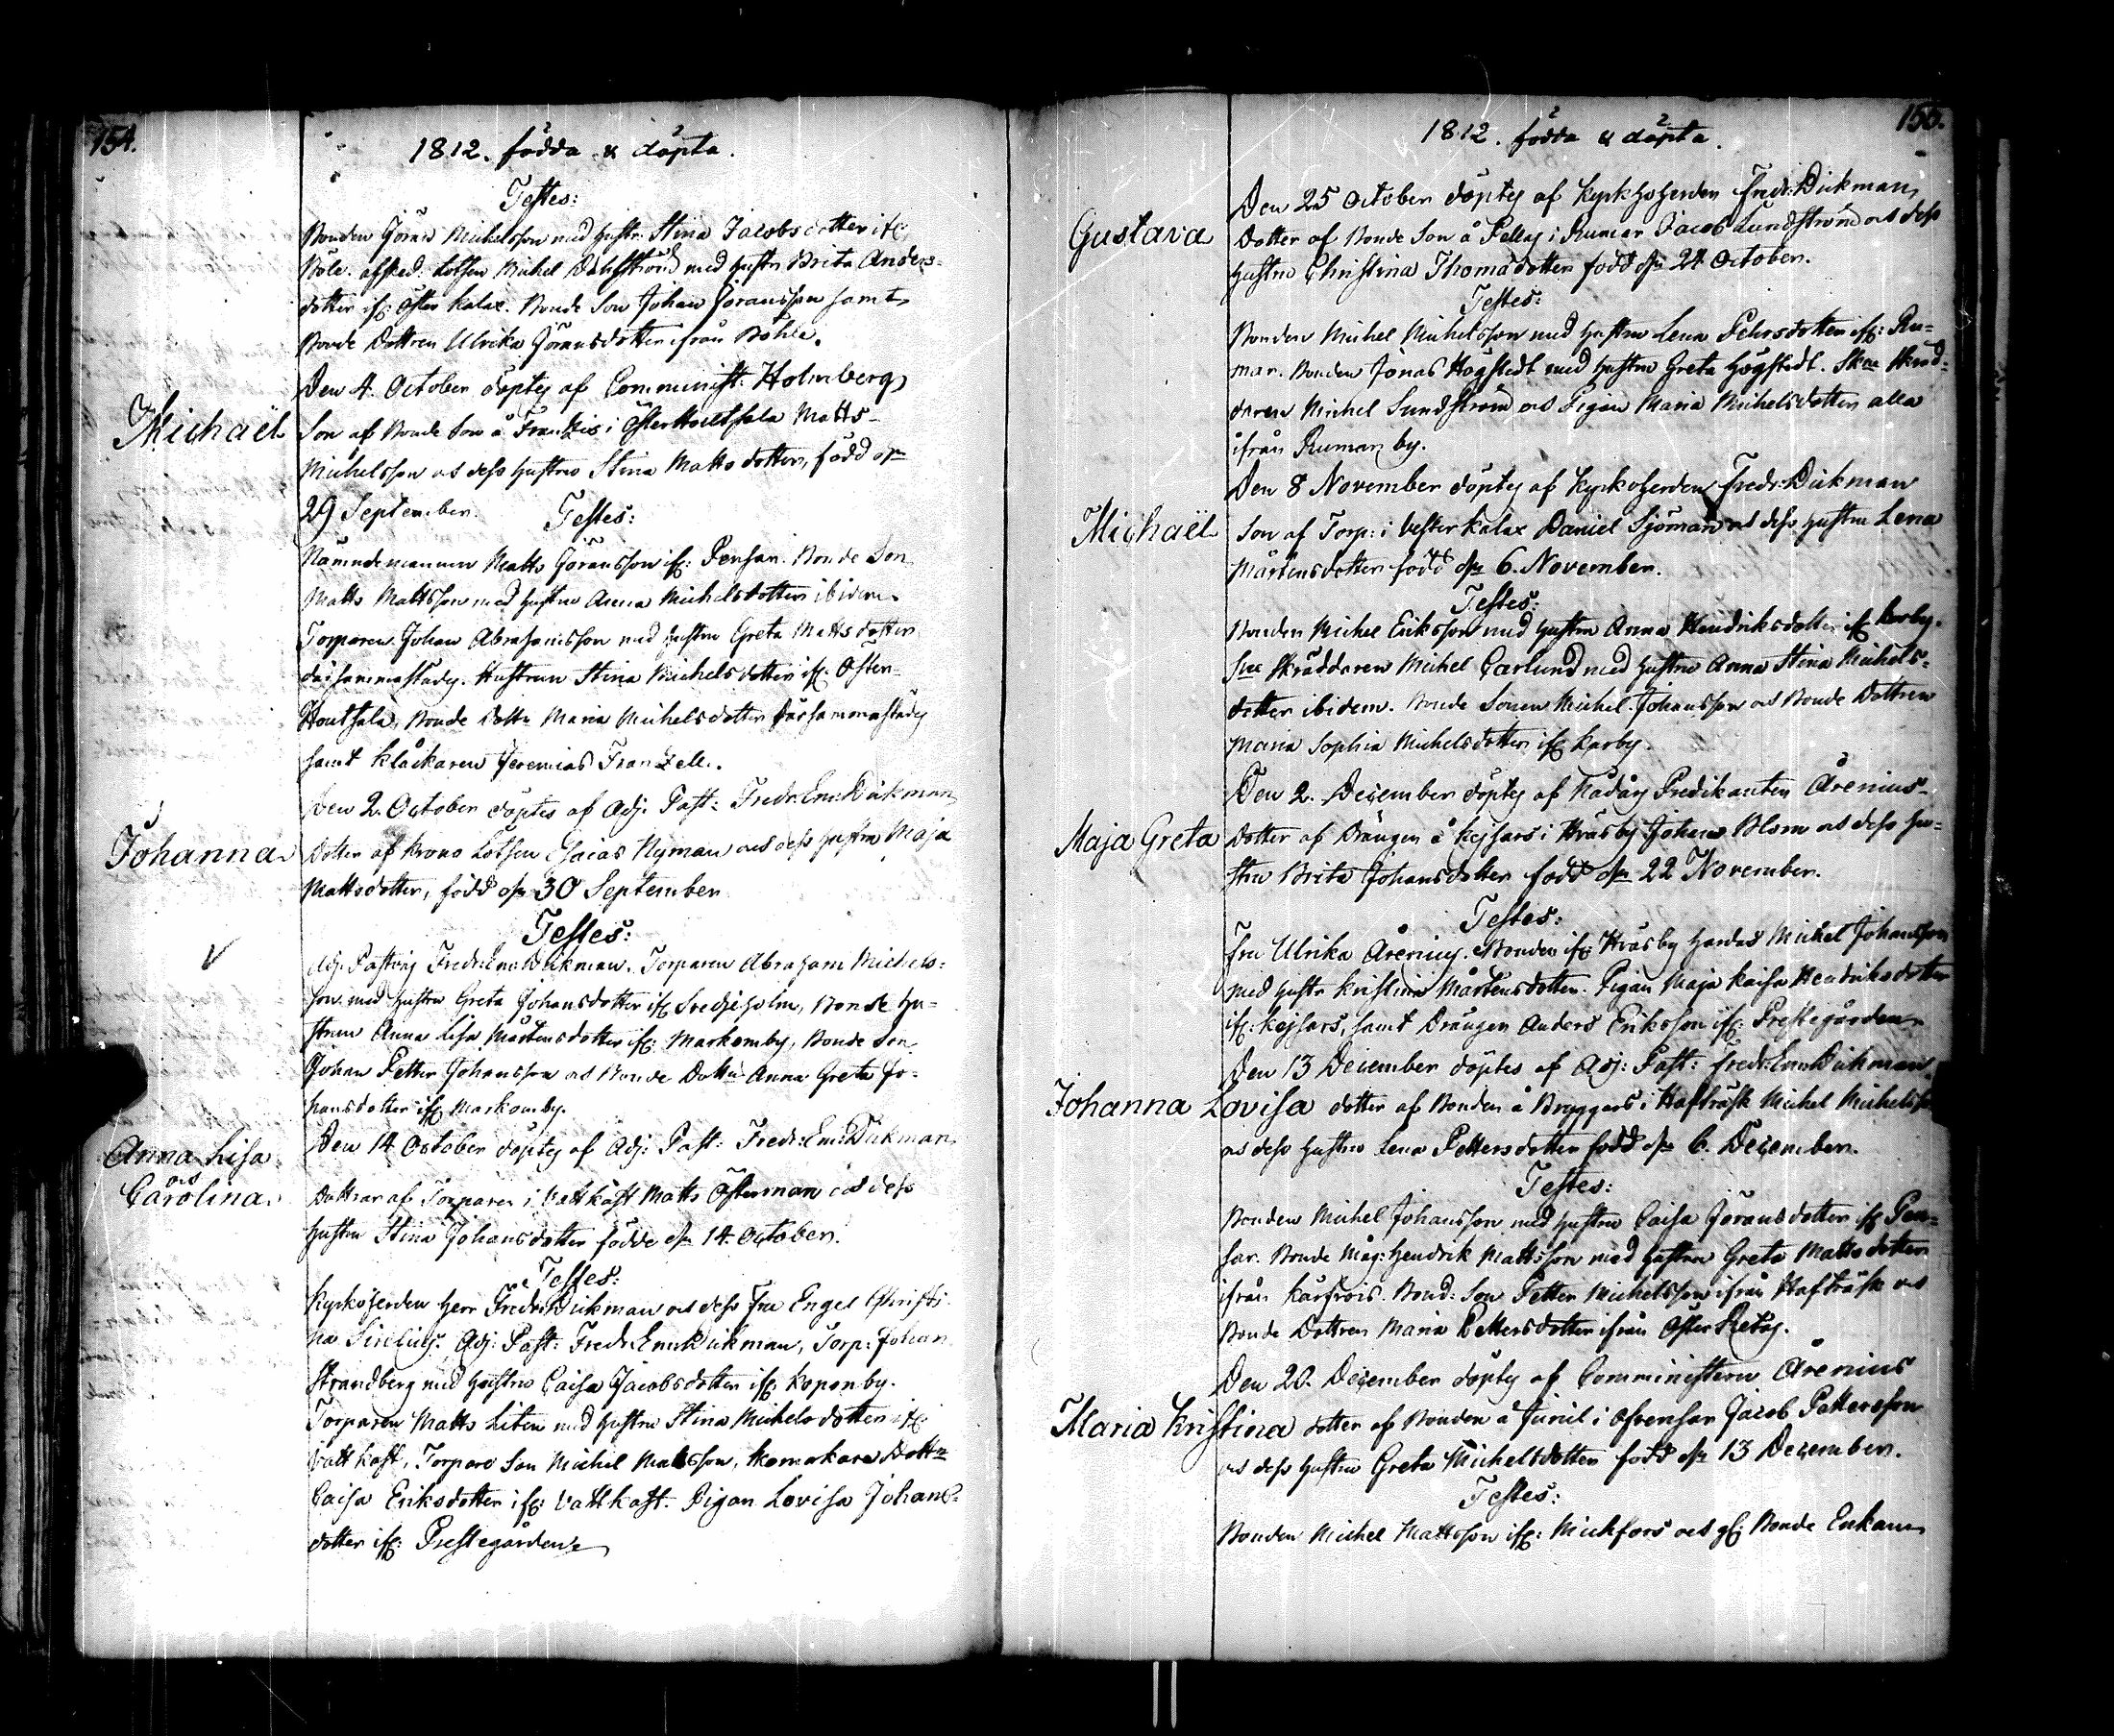 154.
1812. födda & döpta.
Testes:
Bonden Göran Michelsson med hustr: Stina Jacobsdotter ifr:
Böle. afsked: Lotsen Michel Dahlström med hustr Brita Anders-
dotter ifr: Öster Kalax. Bonde Son Johan Göransson samt
Bonde Dottren Ulrika Göransdotter ifrån Böhle.
Den 4. October döptes af Comminist: Holmberg
Michaël
Son af Bonde Son å Frantzis i Öster Houtskala Matts
Michelsson och dess hustru Stina Matts dotter, född den
29 September.
Testes:
Nämndemannen Matts Göransson ifr: Pensar. Bonde Son
Matts Mattsson med hustru Anna Michelsdotter ibidem.
Torparen Johan Abrahamsson med hustru Greta Matts dotter
därsammastädes. Hustrun Stina Michelsdotter ifr: Öster-
Houtskala, Bonde Dottr Maria Michelsdotter därsammastädes
samt Klåckaren Jeremias Franzell.
Den 2. October döptes af Adj: Past: Fredr: Em: Dickman
Johanna
Dotter af Krono Lotsen Esaias Nyman och dess hustru Maja
Mattsdotter, född den 30 September
Testes:
Adj: Pastoris Fredr: Em: Dickman. Torparen Abraham Michels-
son med hustru Greta Johansdotter ifr: Sredjeholm, Bonde hu-
strun Anna Lisa Mårtensdotter ifr: Markomby, Bonde Son
Johan Petter Johansson och Bonde Dottr: Anna Greta Jo-
hansdotter ifr: Markomby.
Den 14 October döptes af Adj: Past: Fredr: Em: Dickman
Anna Lisa
och
Carolina
Döttrar af Torparen i Vattkast Matts Österman och dess
hustru Stina Johansdotter födde den 14. October.
Testes:
Kyrkoherden Herr Fredr: Dickman och dess Fru Engel Christi-
na Sirelius. Adj: Past: Fredr: Em: Dickman, Torp: Johan
Strandberg med hustru Caisa Jacobsdotter ifr: Kopomby.
Torparen Matts Liten med hustru Stina Michelsdotter ifr:
Vattkast, Torpare Son Michel Matsson, Skomakare Dottr
Caisa Eriksdotter ifr: Vattkast. Pigan Lovisa Johans-
dotter ifr: Prestegården
155.
1812. födda & döpta.
Den 25 October döptes af Kyrkhoherden Fredr: Dickman
Gustava
Dotter af Bonde Son å Pellas i Rumar Jacob Lundström och dess
hustru Christina Thomasdotter född den 24 October.
Testes:
Bonden Michel Michelsson med hustru Lena Pehrsdotter ifr: Ru-
mar. Bonden Jonas Högstedt med hustru Greta Högstedt. Skräd-
daren Michel Sundström och Pigan Maria Michelsdotter alla
ifrån Rumar by.
Den 8 November döptes af Kyrkoherden Fredr: Dickman
Michaël
Son af Torp: i Vester Kalax Daniel Sjöman och dess hustru Lena
Mårtensdotter född den 6. November.
Testes:
Bonden Michel Eriksson med hustru Anna Hendriksdotter ifr: Korby.
Skräddaren Michel Carlund med hustru Anna Stina Michels-
dotter ibidem. Bonde Sonen Michel Johansson och Bonde Dottren
Maria Sophia Michelsdotter ifr: Karby.
Den 2. December döptes af Nådårs Predikanten Årenius
Maja Greta
Dotter af Drängen å Kejsars i Träsby Johan Blom och dess hu-
stru Brita Johansdotter född den 22 November.
Testes:
Fru Ulrika Årenius. Bonden ifr: Träsby Michel Johansson
med hustr Kristina Mårtensdotter. Pigan Maja Kaisa Hendriksdotter
ifr: Kejsars, samt Drängen Anders Eriksson ifr: Prestegården
Den 13 December döptes af Adj: Past: Fredr: Em: Dickman
Johanna Lovisa
dotter af Bonden å Bryggars i Hafträsk Michel Michelsson
och dess hustru Lena Pettersdotter född den 6. December.
Testes:
Bonden Michel Johansson med hustru Caisa Göransdotter ifr: Pen-
sar. Bonde Måg: Hendrik Mattsson med hustru Greta Mattsdotter
ifrån Kärfrois. Bond: Son Petter Michelsson ifrån Hafträsk och
Bonde Dottren Maria Pettersdotter ifrån Öster Retas.
Den 20. December döptes af Comministern Årenius
Maria Kristina
dotter af Bonden å Junil i Ofvensar Jacob Pettersson
och dess hustru Greta Michelsdotter född den 13 December.
Testes:
Bonden Michel Mattsson ifr: Mickfors och gl: Bonde Enkan